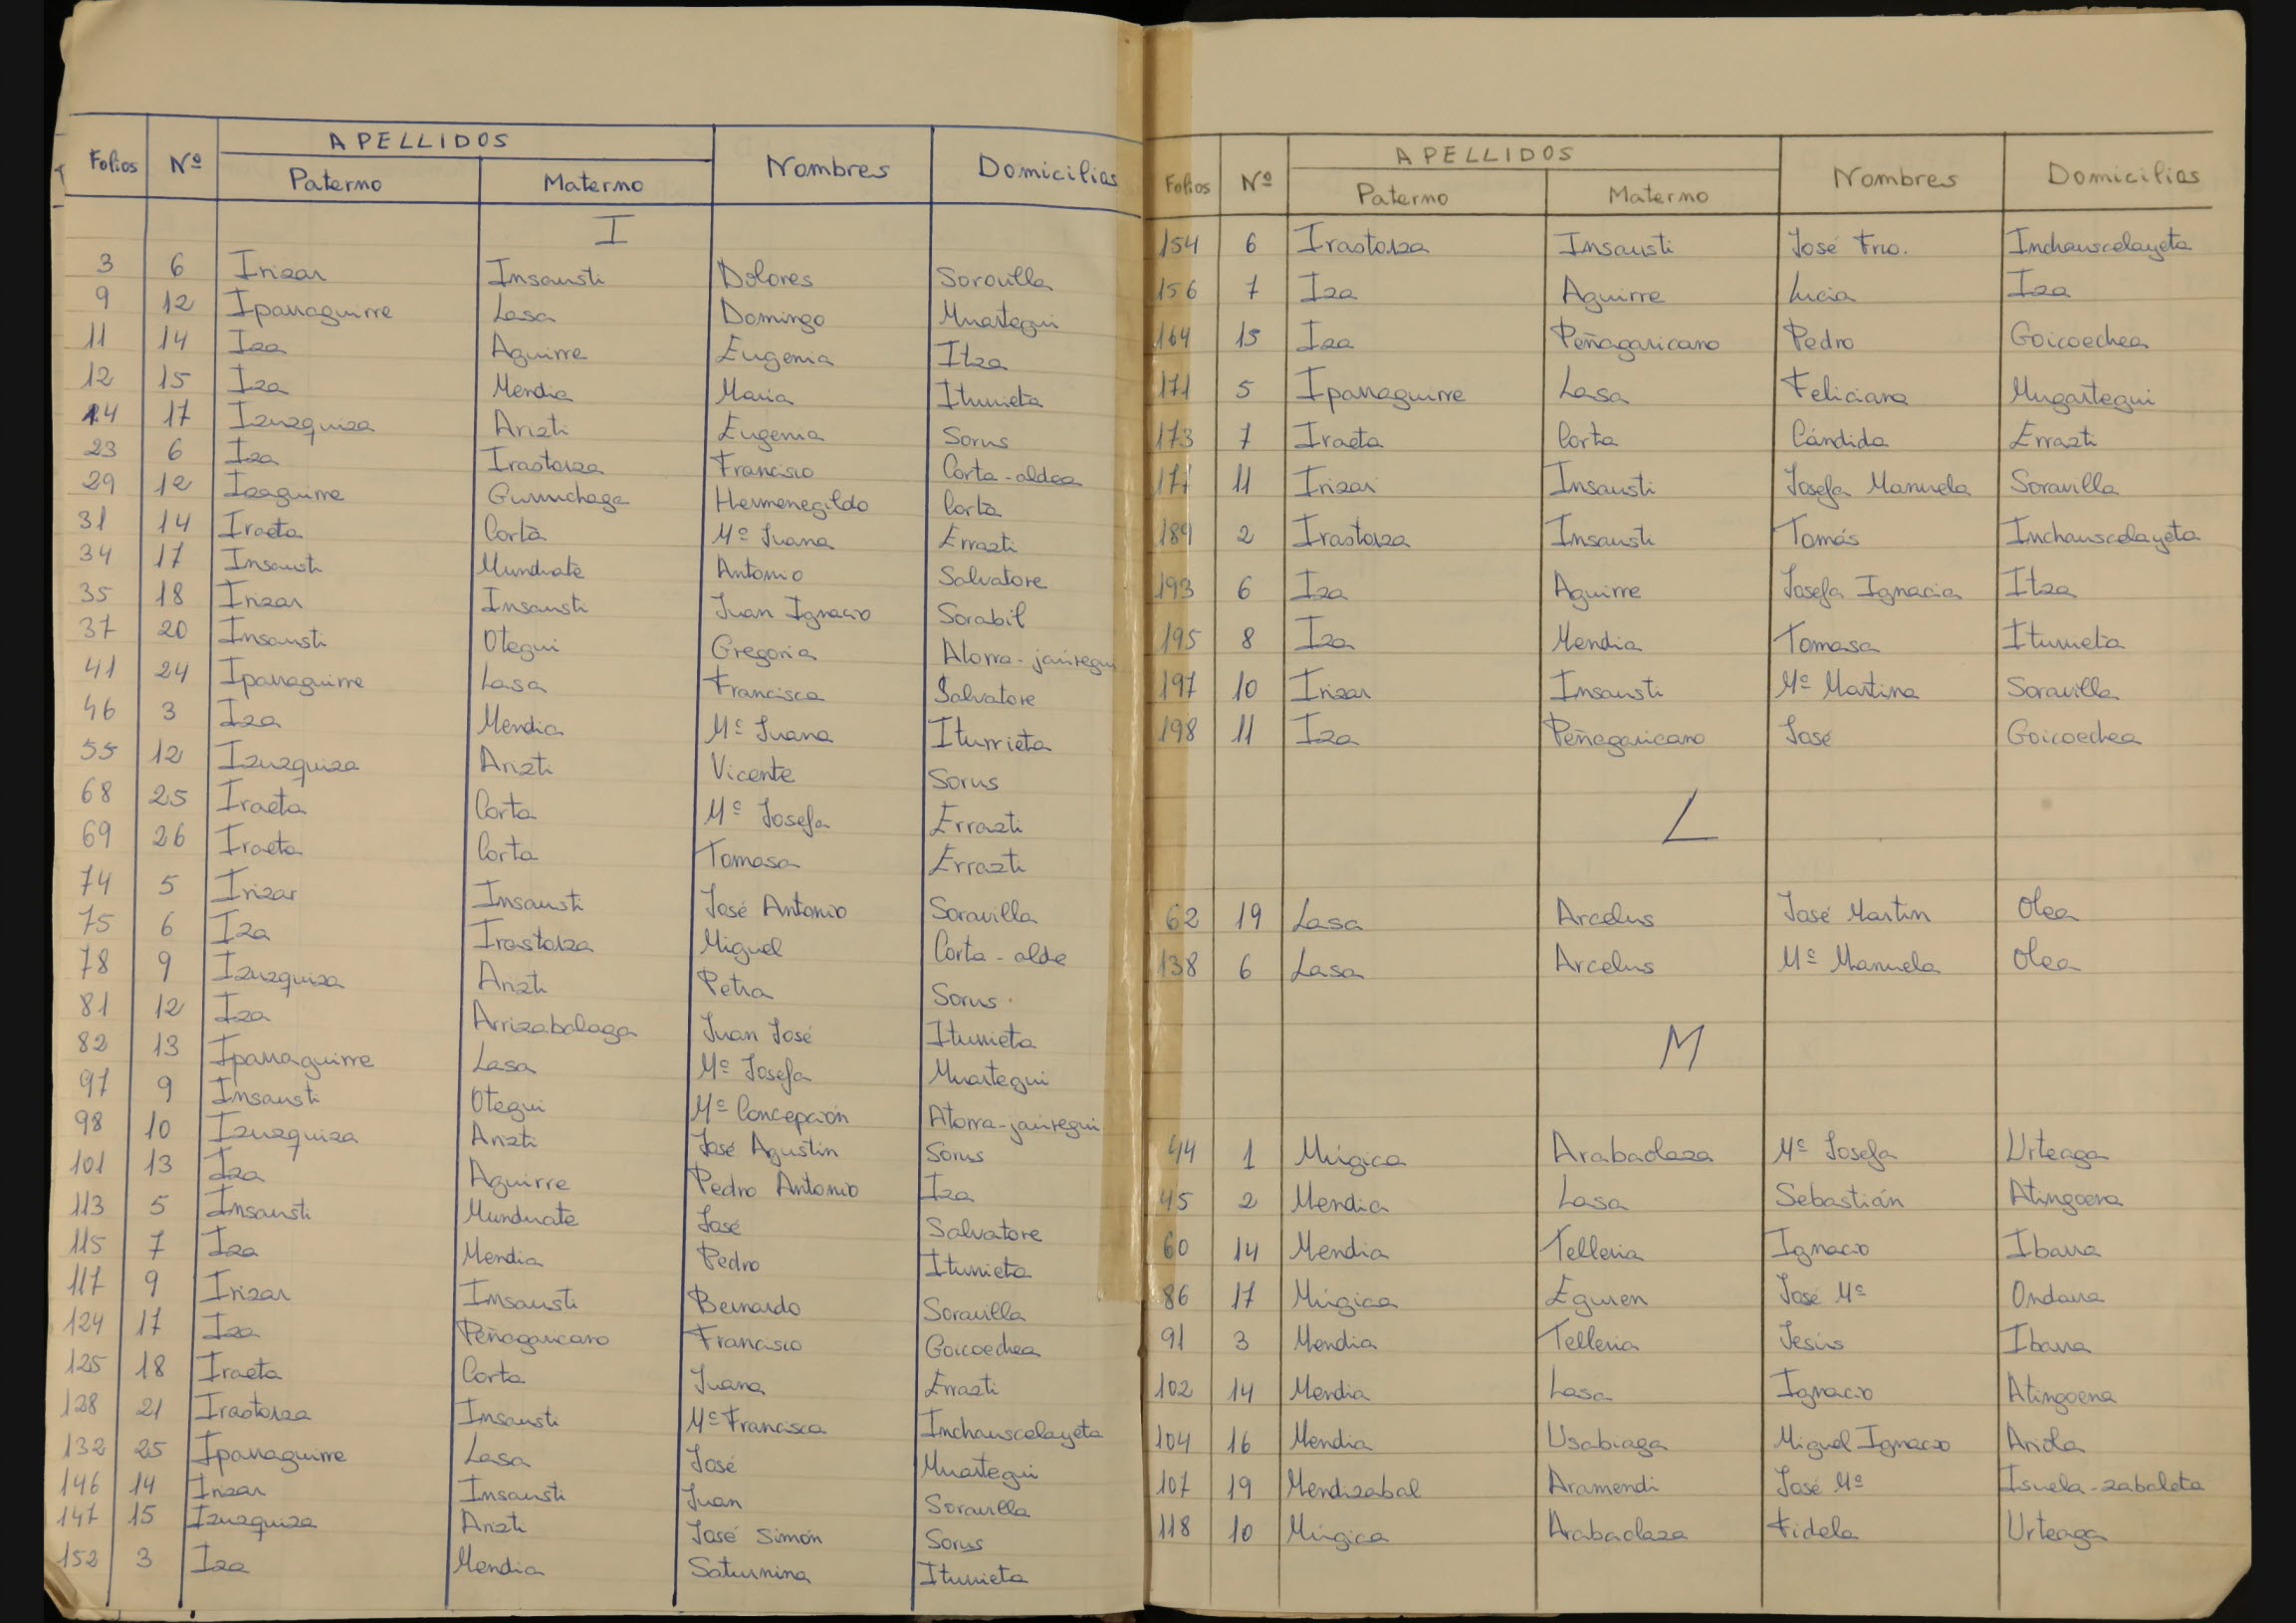 APELLIDOS
Folios Nº Paterno Materno Nombres Domicilios
I
3 6 Irizar Insausti Dolores Soravilla
9 12 Iparraguirre Lasa Domingo Muartegui
11 14 Iza Aguirre Eugenia Itza
12 15 Iza Mendia Maria Iturrieta
14 17 Izuzquiza Arizti Eugenia Sorus
23 6 Iza Irastorza Francisco Corta-aldea
29 12 Izaguirre Gurruchaga Hermenegildo Corta
31 14 Iraeta Corta Mª Juana Errazti
34 17 Insausti Munduate Antonio Salvatore
35 18 Irizar Insausti Juan Ignacio Sorabil
37 20 Insausti Otegui Gregoria Atorra-jauregui
41 24 Iparraguirre Lasa Francisca Salvatore
46 3 Iza Mendia Mª Juana Iturrieta
55 12 Izuzquiza Arizti Vicente Sorus
68 25 Iraeta Corta Mª Josefa Errazti
69 26 Iraeta Corta Tomasa Errazti
74 5 Irizar Insausti José Antonio Soravilla
75 6 Iza Irastorza Miguel Corta-alde
78 9 Izuzquiza Arizti Petra Sorus
81 12 Iza Arrizabalaga Juan José Iturrieta
82 13 Iparraguirre Lasa Mª Josefa Muartegui
97 9 Insausti Otegui Mª Concepción Atorra-jauregui
98 10 Izuzquiza Arizti José Agustín Sorus
101 13 Iza Aguirre Pedro Antonio Iza
113 5 Insausti Munduate José Salvatore
115 7 Iza Mendia Pedro Iturrieta
117 9 Irizar Insausti Bernardo Soravilla
124 17 Iza Peñagaricano Francisco Goicoechea
125 18 Iraeta Corta Juana Errazti
128 21 Irastorza Insausti Mª Francisca Inchauscelayeta
132 25 Iparraguirre Lasa José Muartegui
146 14 Irizar Insausti Juan Soravilla
147 15 Izuzquiza Arizti José Simón Sorus
152 3 Iza Mendia Saturnina Iturrieta
APELLIDOS
Folios Nº Paterno Materno Nombres Domicilios
154 6 Irastorza Insausti José Frco. Inchauscelayeta
156 7 Iza Aguirre Lucia Iza
164 15 Iza Peñagaricano Pedro Goicoechea
171 5 Iparraguirre Lasa Feliciana Mugartegui
173 7 Iraeta Corta Cándida Errazti
177 11 Irizar Insausti Josefa Manuela Soravilla
189 2 Irastorza Insausti Tomás Inchauscelayeta
193 6 Iza Aguirre Josefa Ignacia Itza
195 8 Iza Mendia Tomasa Iturrieta
197 10 Irizar Insausti Mª Martina Soravilla
198 11 Iza Peñagaricano José Goicoechea
L
62 19 Lasa Arcelus José Martín Olea
138 6 Lasa Arcelus Mª Manuela Olea
M
44 1 Múgica Arabaolaza Mª Josefa Urteaga
45 2 Mendia Lasa Sebastián Atingoena
60 14 Mendia Telleria Ignacio Ibarra
86 17 Múgica Eguren José Mª Ondarra
91 3 Mendia Telleria Jesús Ibarra
102 14 Mendia Lasa Ignacio Atingoena
104 16 Mendia Usabiaga Miguel Ignacio Ariola
107 19 Mendizabal Aramendi José Mª Isuela-zabaleta
118 10 Múgica Arabaolaza Fidela Urteaga